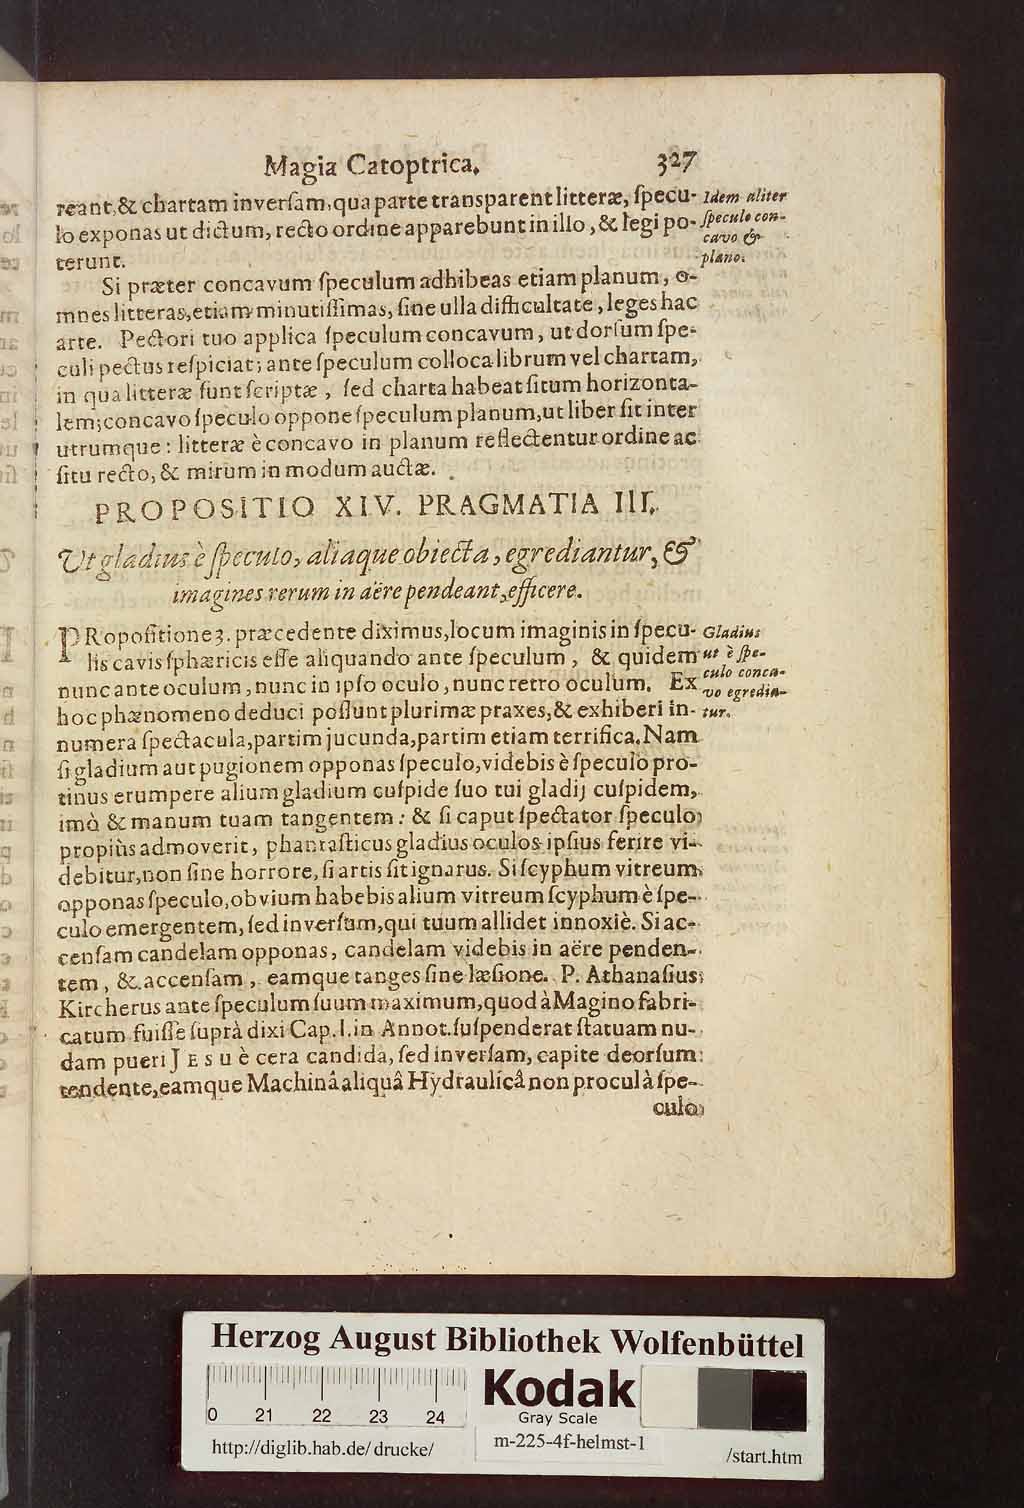 Magia Catoptrica. 327
reant,& chartam inverſam,qua parte transparent litteræ, ſpecu-
lo exponas ut dictum, recto ordine apparebunt in illo, & legi po-
terunt.
Idem aliter
ſpeculo con-
cavo &
plano.
Si præter concavum ſpeculum adhibeas etiam planum, o-
mnes litteras,etiam minutiſſimas, ſine ulla difficultate, leges hac
arte. Pectori tuo applica ſpeculum concavum, ut dorſum ſpe-
culi pectus reſpiciat; ante ſpeculum colloca librum vel chartam,
in qua litteræ ſunt ſcriptæ, ſed charta habeat ſitum horizonta-
lem; concavo ſpeculo oppone ſpeculum planum,ut liber ſit inter
utrumque: litteræ è concavo in planum reflectentur ordine ac
ſitu recto, & mirum in modum auctæ.
PROPOSITIO XIV. PRAGMATIA III.
Ut gladius è ſpeculo, aliaque obiecta, egrediantur, &
imagines rerum in aëre pendeant, efficere.
PRopoſitione 3. præcedente diximus, locum imaginis in ſpecu-
lis cavis ſphæricis eſſe aliquando ante ſpeculum, & quidem
nunc ante oculum, nunc in ipſo oculo, nunc retro oculum. Ex
hoc phænomeno deduci poſſunt plurimæ praxes,& exhiberi in-
Gladius
ut è ſpe-
culo conca-
vo egredia-
tur.
numera ſpectacula,partim jucunda,partim etiam terrifica. Nam
ſi gladium aut pugionem opponas ſpeculo,videbis è ſpeculo pro-
tinus erumpere alium gladium cuſpide ſuo tui gladij cuſpidem,
imò & manum tuam tangentem: & ſi caput ſpectator ſpeculo
propiùs admoverit, phantaſticus gladius oculos ipſius ferire vi-
debitur,non ſine horrore, ſi artis ſit ignarus. Si ſcyphum vitreum
opponas ſpeculo,obvium habebis alium vitreum ſcyphum è ſpe-
culo emergentem, ſed inverſum,qui tuum allidet innoxiè. Si ac-
cenſam candelam opponas, candelam videbis in aëre penden-
tem, & accenſam, eamque tanges ſine læſione. P. Athanaſius
Kircherus ante ſpeculum ſuum maximum,quod à Magino fabri-
catum fuiſſe ſuprà dixi Cap. I. in Annot. ſuſpenderat ſtatuam nu-
dam pueri JESU è cera candida, ſed inverſam, capite deorſum
tendente,eamque Machinâ aliquâ Hydraulicâ non procul à ſpe-
culo
Herzog August Bibliothek Wolfenbüttel
0 21 22 23 24
Kodak
Gray Scale
http://diglib.hab.de/ drucke/
m-225-4f-helmst-1
/start.htm